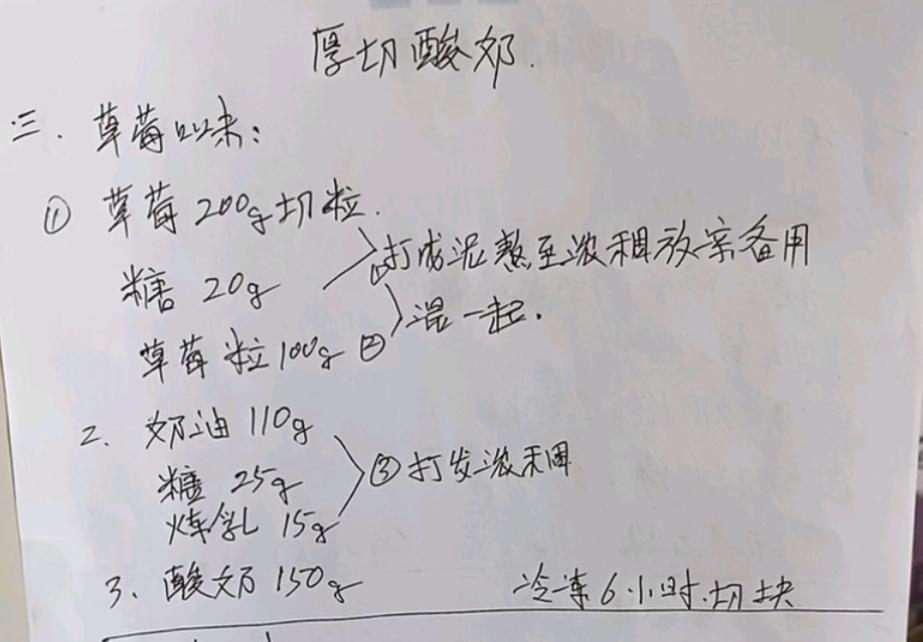 厚切酸奶.
三. 草莓口味:
① 草莓200g切粒.
糖 20g ① 打成泥熬至浓稠放凉备用
草莓粒100g ② 混一起.
2. 奶油110g
糖 25g ③打发浓稠
炼乳 15g
3. 酸奶150g 冷冻6小时.切块